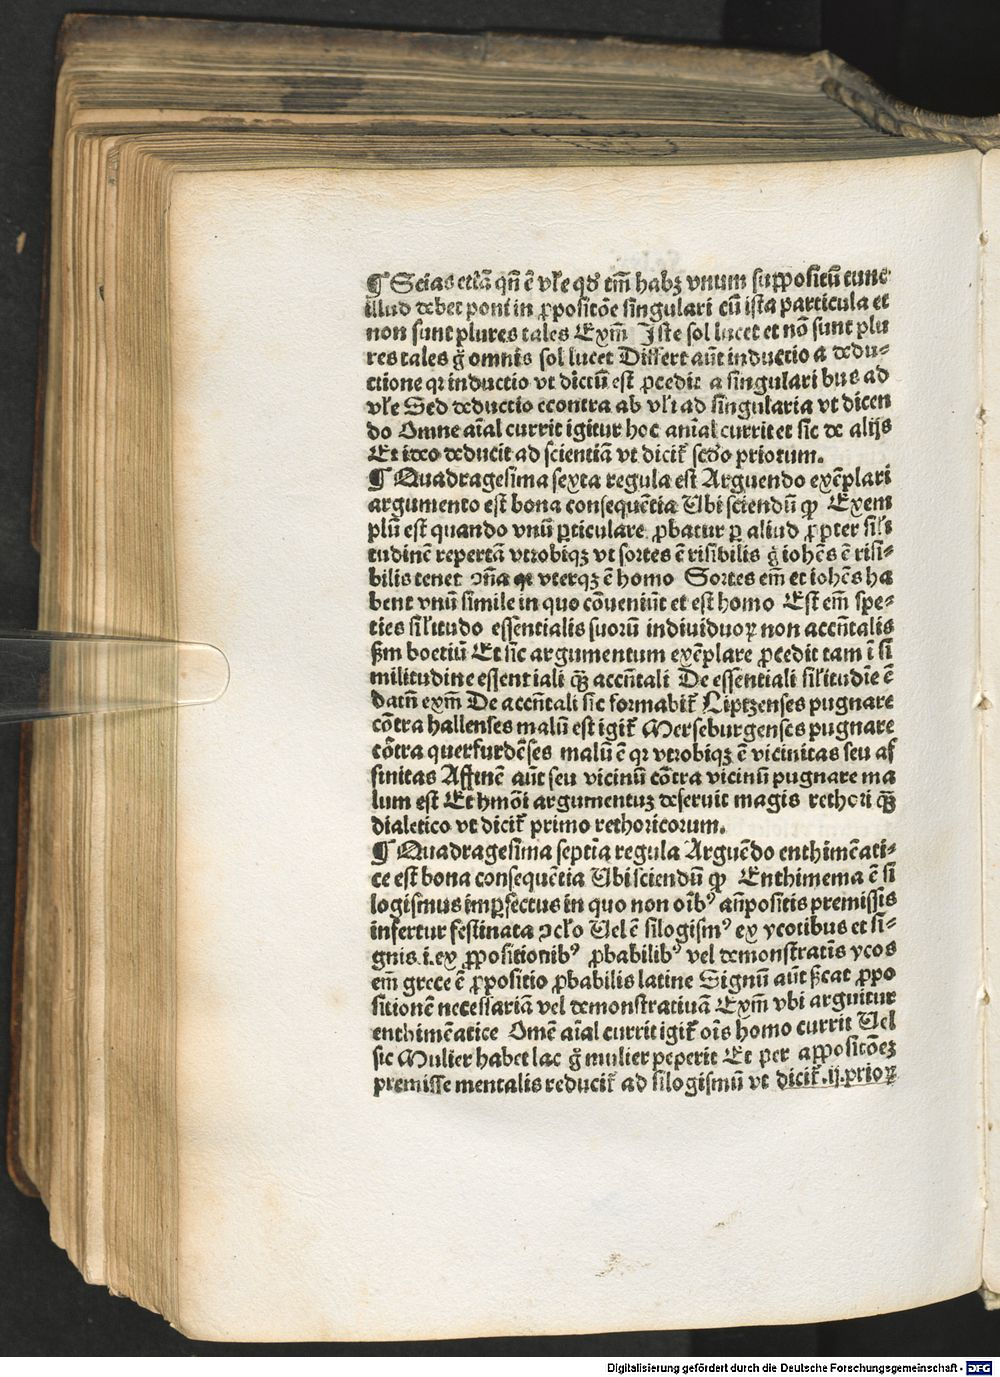 ¶ Scias etiã qñ ē vl̄e qđ tm̄ habꝫ vnum suppositū tunc
illud debet poni in ꝓpositōe singulari cū ista particula et
non sunt plures tales Exm̄ Iste sol lucet et nō sunt plu
res tales g̊ omnis sol lucet Differt aūt inductio a dedu⸗
ctione qꝛ inductio vt dictū est ꝓcedit a singularibus ad
vl̄e Sed deductio econtra ab vl̄i ad singularia vt dicen
do Omne aīal currit igitur hoc anīal currit et sic de alijs
Et ideo deducit ad scientiā vt dicit᷑ scđo priorum.
¶ Quadragesima sexta regula est Arguendo exēplari
argumento est bona consequētia Ubi sciendū ꝙ Exem
plū est quando vnū ꝑticulare ꝓbatur ꝑ aliud ꝓpter sil'i
tudinē repertā vtrobiqꝫ vt sortes ē risibilis g̊ iohēs ē risi⸗
bilis tenet ꝯña qꝛ vterqꝫ ē homo Sortes em̄ et iohēs ha
bent vnū simile in quo cōueniūt et est homo Est em̄ spe⸗
ties sil'itudo essentialis suorū indiuiduoꝝ non accñtalis
ẜm boetiū Et sic argumentum exēplare ꝓcedit tam ī si
militudine essentiali qꝫ̄ accñtali De essentiali sil'itudīe ē
datū exm̄ De accñtali sic formabit᷑ Liptzenses pugnare
cōtra hallenses malū est igit᷑ Merseburgenses pugnare
cōtra querfurdēses malū ē qꝛ vtrobiqꝫ ē vicinitas seu af
finitas Affinē aūt seu vicinū cōtra vicinū pugnare ma
lum est Et hmōi argumentuꝫ deseruit magis rethori qꝫ̄
dialetico vt dicit᷑ primo rethoricorum.
¶ Quadragesima septīa regula Arguēdo enthimēati⸗
ce est bona consequētia Ubi sciendū ꝙ Enthimema ē si
logismus imꝑfectus in quo non oīb⁹ añpositis premissis
infertur festinata ꝯcl̄o Uel ē silogism⁹ ex ycotibus et si⸗
gnis .i. ex ꝓpositionib⁹ ꝓbabilib⁹ vel demonstratīs ycos
em̄ grece ē ꝓpositio ꝓbabilis latine Signū aūt ẜcat ꝓpo
sitionē necessariā vel demonstratiuā Exm̄ vbi arguitur
enthimēatice Omē aīal currit igit᷑ oīs homo currit Uel
sic Mulier habet lac g̊ mulier peperit Et per appositōeꝫ
premisse mentalis reducit᷑ ad silogismū vt dicit᷑ .ij. prioꝝ
Digitalisierung gefördert durch die Deutsche Forschungsgemeinschaft - DFG